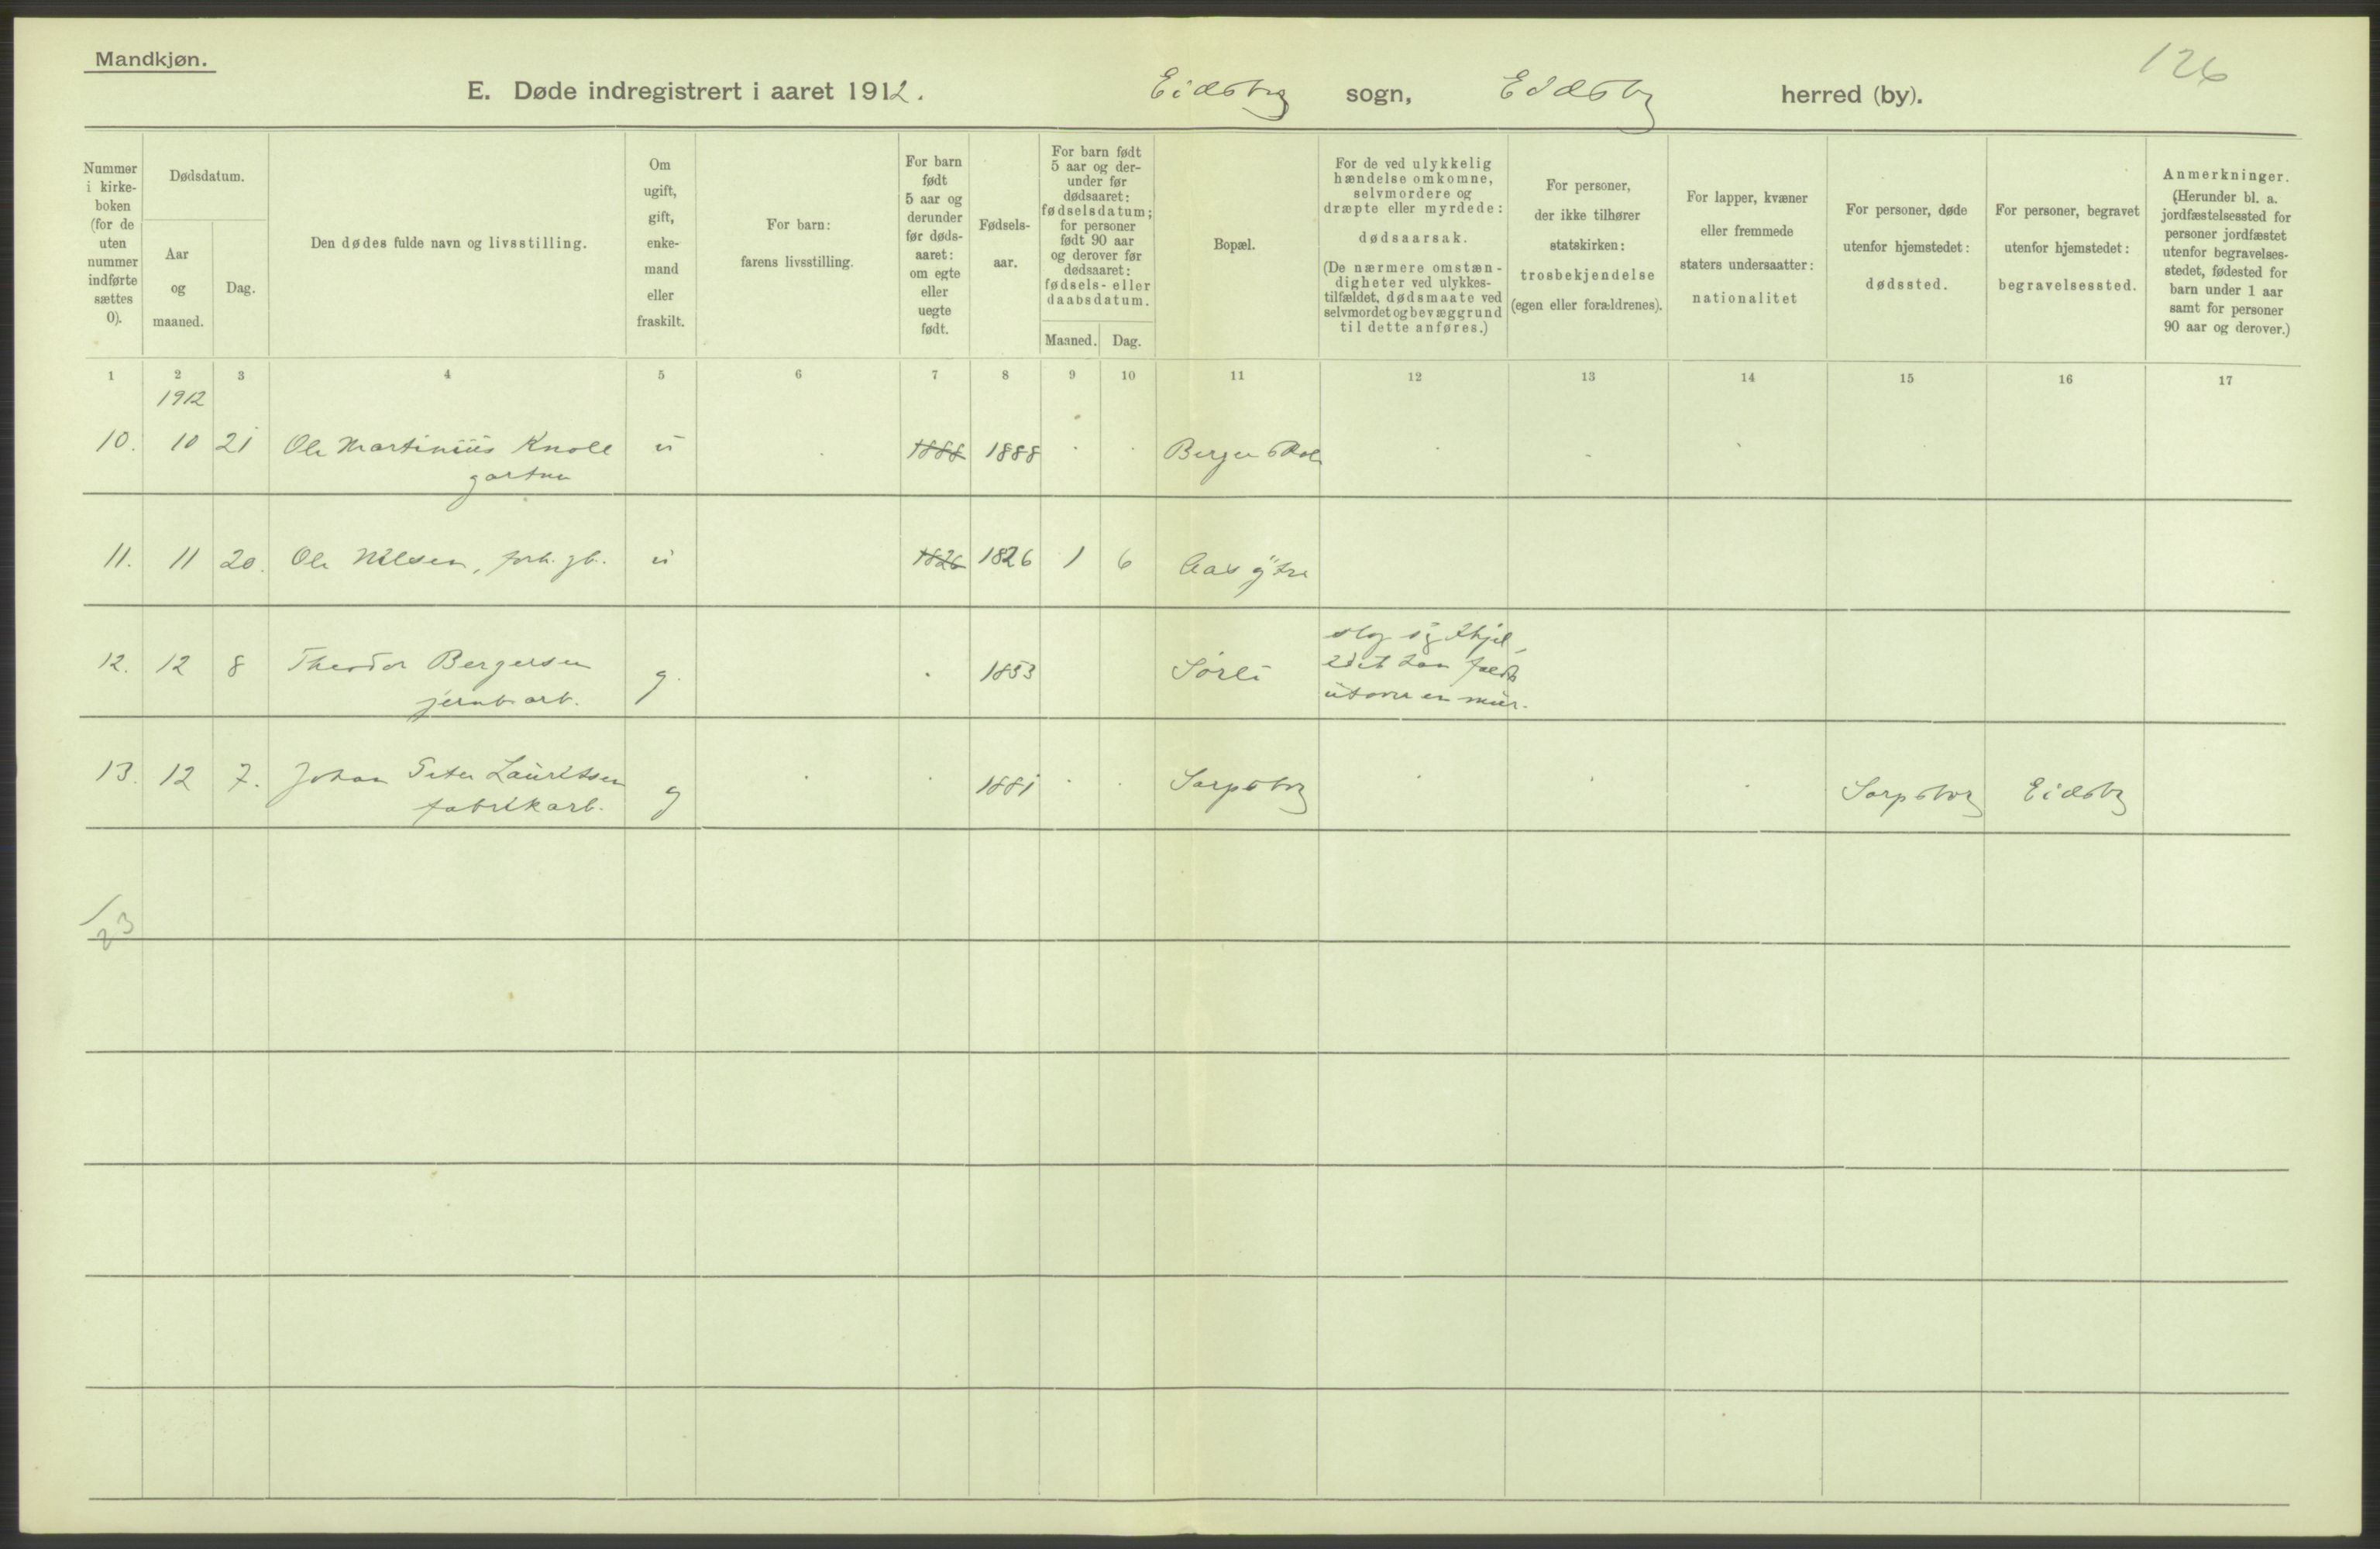 Mandkjøn.
126
E. Døde indregistrert i aaret 1912. Eidsbrg sogn, Eidsbg herred (by).
Nummer i kirke-boken (for de uten nummer indførte sættes 0).
Dødsdatum.
Aar og maaned.
Dag.
Den dødes fulde navn og livsstilling.
Om ugift, gift, enke-mand eller fraskilt.
For barn: farens livsstilling.
For barn født 5 aar og derunder før døds-aaret: om egte eller uegte født.
Fødsels-aar.
For barn født 5 aar og der-under før dødsaaret: fødselsdatum; for personer født 90 aar og derover før dødsaaret: fødsels- eller daabsdatum.
Maaned. Dag.
Bopæl.
For de ved ulykkelig hændelse omkomne, selvmordere og dræpte eller myrdede: dødsaarsak. (De nærmere omstæn-digheter ved ulykkes-tilfældet, dødsmaate ved selvmordet og bevæggrund til dette anføres.)
For personer, der ikke tilhører statskirken: trosbekjendelse (egen eller forældrenes).
For lapper, kvæner eller fremmede staters undersaatter: nationalitet
For personer, døde utenfor hjemstedet: dødssted.
For personer, begravet utenfor hjemstedet: begravelsessted.
Anmerkninger. (Herunder bl. a. jordfæstelsessted for personer jordfæstet utenfor begravelses-stedet, fødested for barn under 1 aar samt for personer 90 aar og derover.)
1 2 3 4 5 6 7 8 9 10 11 12 13 14 15 16 17
1912
10. 10 21 Ole Martinius Knoll u 1888 1888 Berger
gartner
11. 11 20. Ole Nilsen, forh. gb. u 1826 1826 1 6 Aas ytre
12. 12 8 Theodor Bergersen g. 1853 Sørli slog sig ihjel,
jernb. arb. idet han faldt
utover en mur.
13. 12 7. Johan Peter Lauritsen g 1881 Sarpsborg Sarpsborg Eidsbg
fabrikarb.